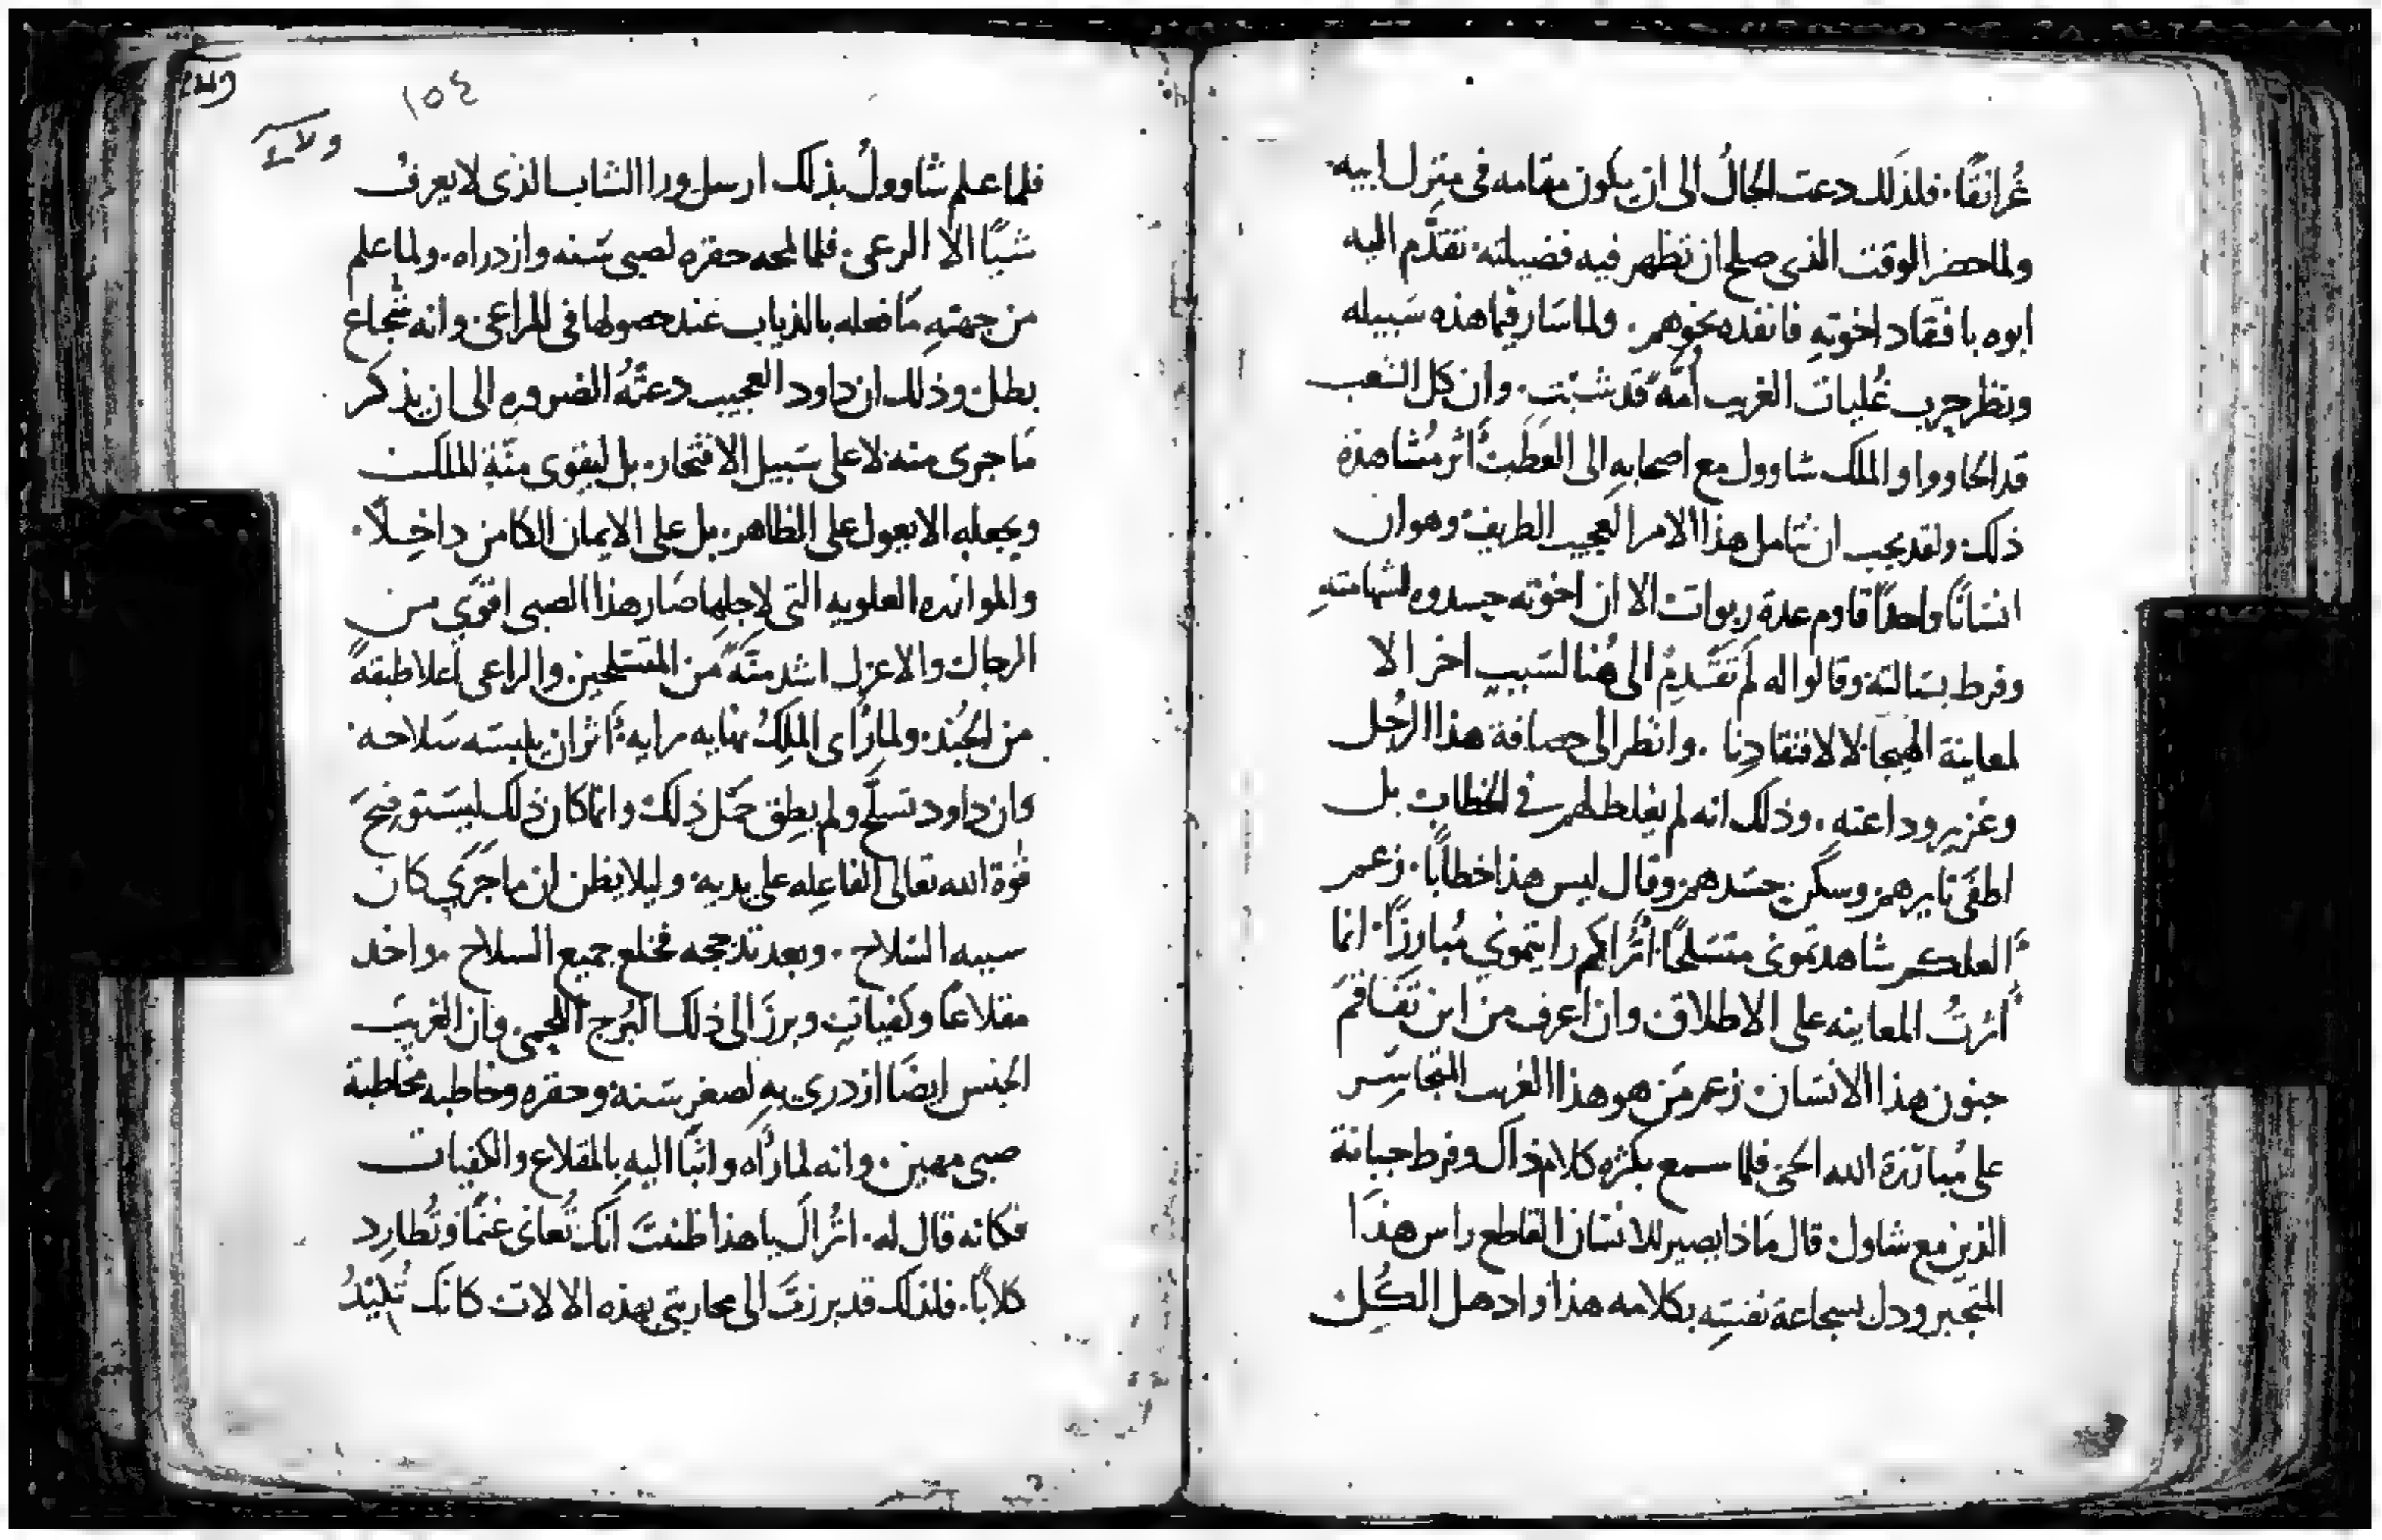 غُرانقًا. فلذلك دعت الحالُ الى ان يكون مقامه فى منزل ابيه.
ولما حضر الوقت الذى صلح ان تظهر فيه فضيلته. تقدَّم اليه
ابوه بافتقاد اخوته فانفذه نحوهم. ولما سار فيما هذه سَبيله
ونظر حرب غُلبات الغريب امَّةً قد شبّت. وان كل الشعب
قد الحاووا والملك شاوول مع اصحابه الى العَطَبْ أثر مُشاهدة
ذلك ولقد يجب ان نتامل هذا الامر العجيب الطريف. وهو ان
انسَانًا واحدًا قاوم عدة ربوات الا ان اخوته حسدوه لشهامته
وفرط بسَالته وقالوا له لَم تقَدِم الى هُنا لسَببٍ اخر الا
لمعاينة الهيجا لا لافتقادِنا . وانظر الى حصافة هذا الرجُل
وغزير وداعته . وذلك انه لم يغلظ لهم فى الخطاب بل
اطفَى نايرهم وسكّن حسَدهم وقال ليس هذا خطابًا. زعم
العلكم شاهدتمونى متسَلحًا. اتُراكم رايتمونى مُبارزًا. انما
اثرتُ المعاينه على الاطلاق وان اعرف من اين تَفَاقمَ
جنون هذا الانسَان. زعم مَن هو هذا الغريب المتجاسِر
على مُبارزة الله الحى فلما سمع بكثره كلام ذاك وفرط جبانة
الذين مع شاول. قال مَاذا يصير للانسَان القاطع راس هذَا
المتجبر ودل بسجاعة نفسِه بكلامه هذا واذهل الكُل
١٥٤
فلما علم شاوولُ بذلك ارسل ورا الشاب الذى لا يعرفُ
شيًا الا الرعى. فلما لمحه حقره لصبى سَنه وازدراه. ولما علم
من جهتهِ مَا فعله بالذياب عند حصولها فى المراعى. وانه شُجاع
بطل. وذلك ان داود العجيب دعتْهُ الضروره الى ان يذكر
مَا جرى منه لا على سَبيل الافتخار. بل ليقوى منَّة الملك
ويجعله الا يعول على الظاهر. بل على الايمان الكامن داخِلاً.
والموازره العلويه التى لاجلها صَار هذا الصبى اقوَى من
الرجال والاعزل اشد منَّةً من المتسَلحين. والراعى اعلا طبقةً
من الجُند. ولما رُاى الملِكُ نهايه رايه. اثر ان يلبسَه سَلاحه.
وان داود تسلَّح ولم يطق حَمل ذلك وانما كان ذلك ليسَتوضِحَ
قوة الله تعالى الفاعِله على يديه. وليلا يظن ان ماجَرَى كان
سببه السَلاح . وبعد تدججه فخلع جميع السلاح . واخد
مقلاعًا وكفيّاتٍ وبرزَ الى ذلك البُرج اللحمى. وان الغريبَ
الجنس ايضًا ازدرى بهِ لصغر سَنه وحقره وخاطبه مخاطبة
صبى مهين. وانه لما رَاه واثبًا اليه بالمقلاع والكفيات
فكانه قال له. اتُراكَ يا هذا ظننتَ انك تُعانى غنمًا وتُطارِد
كلابًا. فلذلك قد برزتَ الى محاربتى بهذه الالات كانك